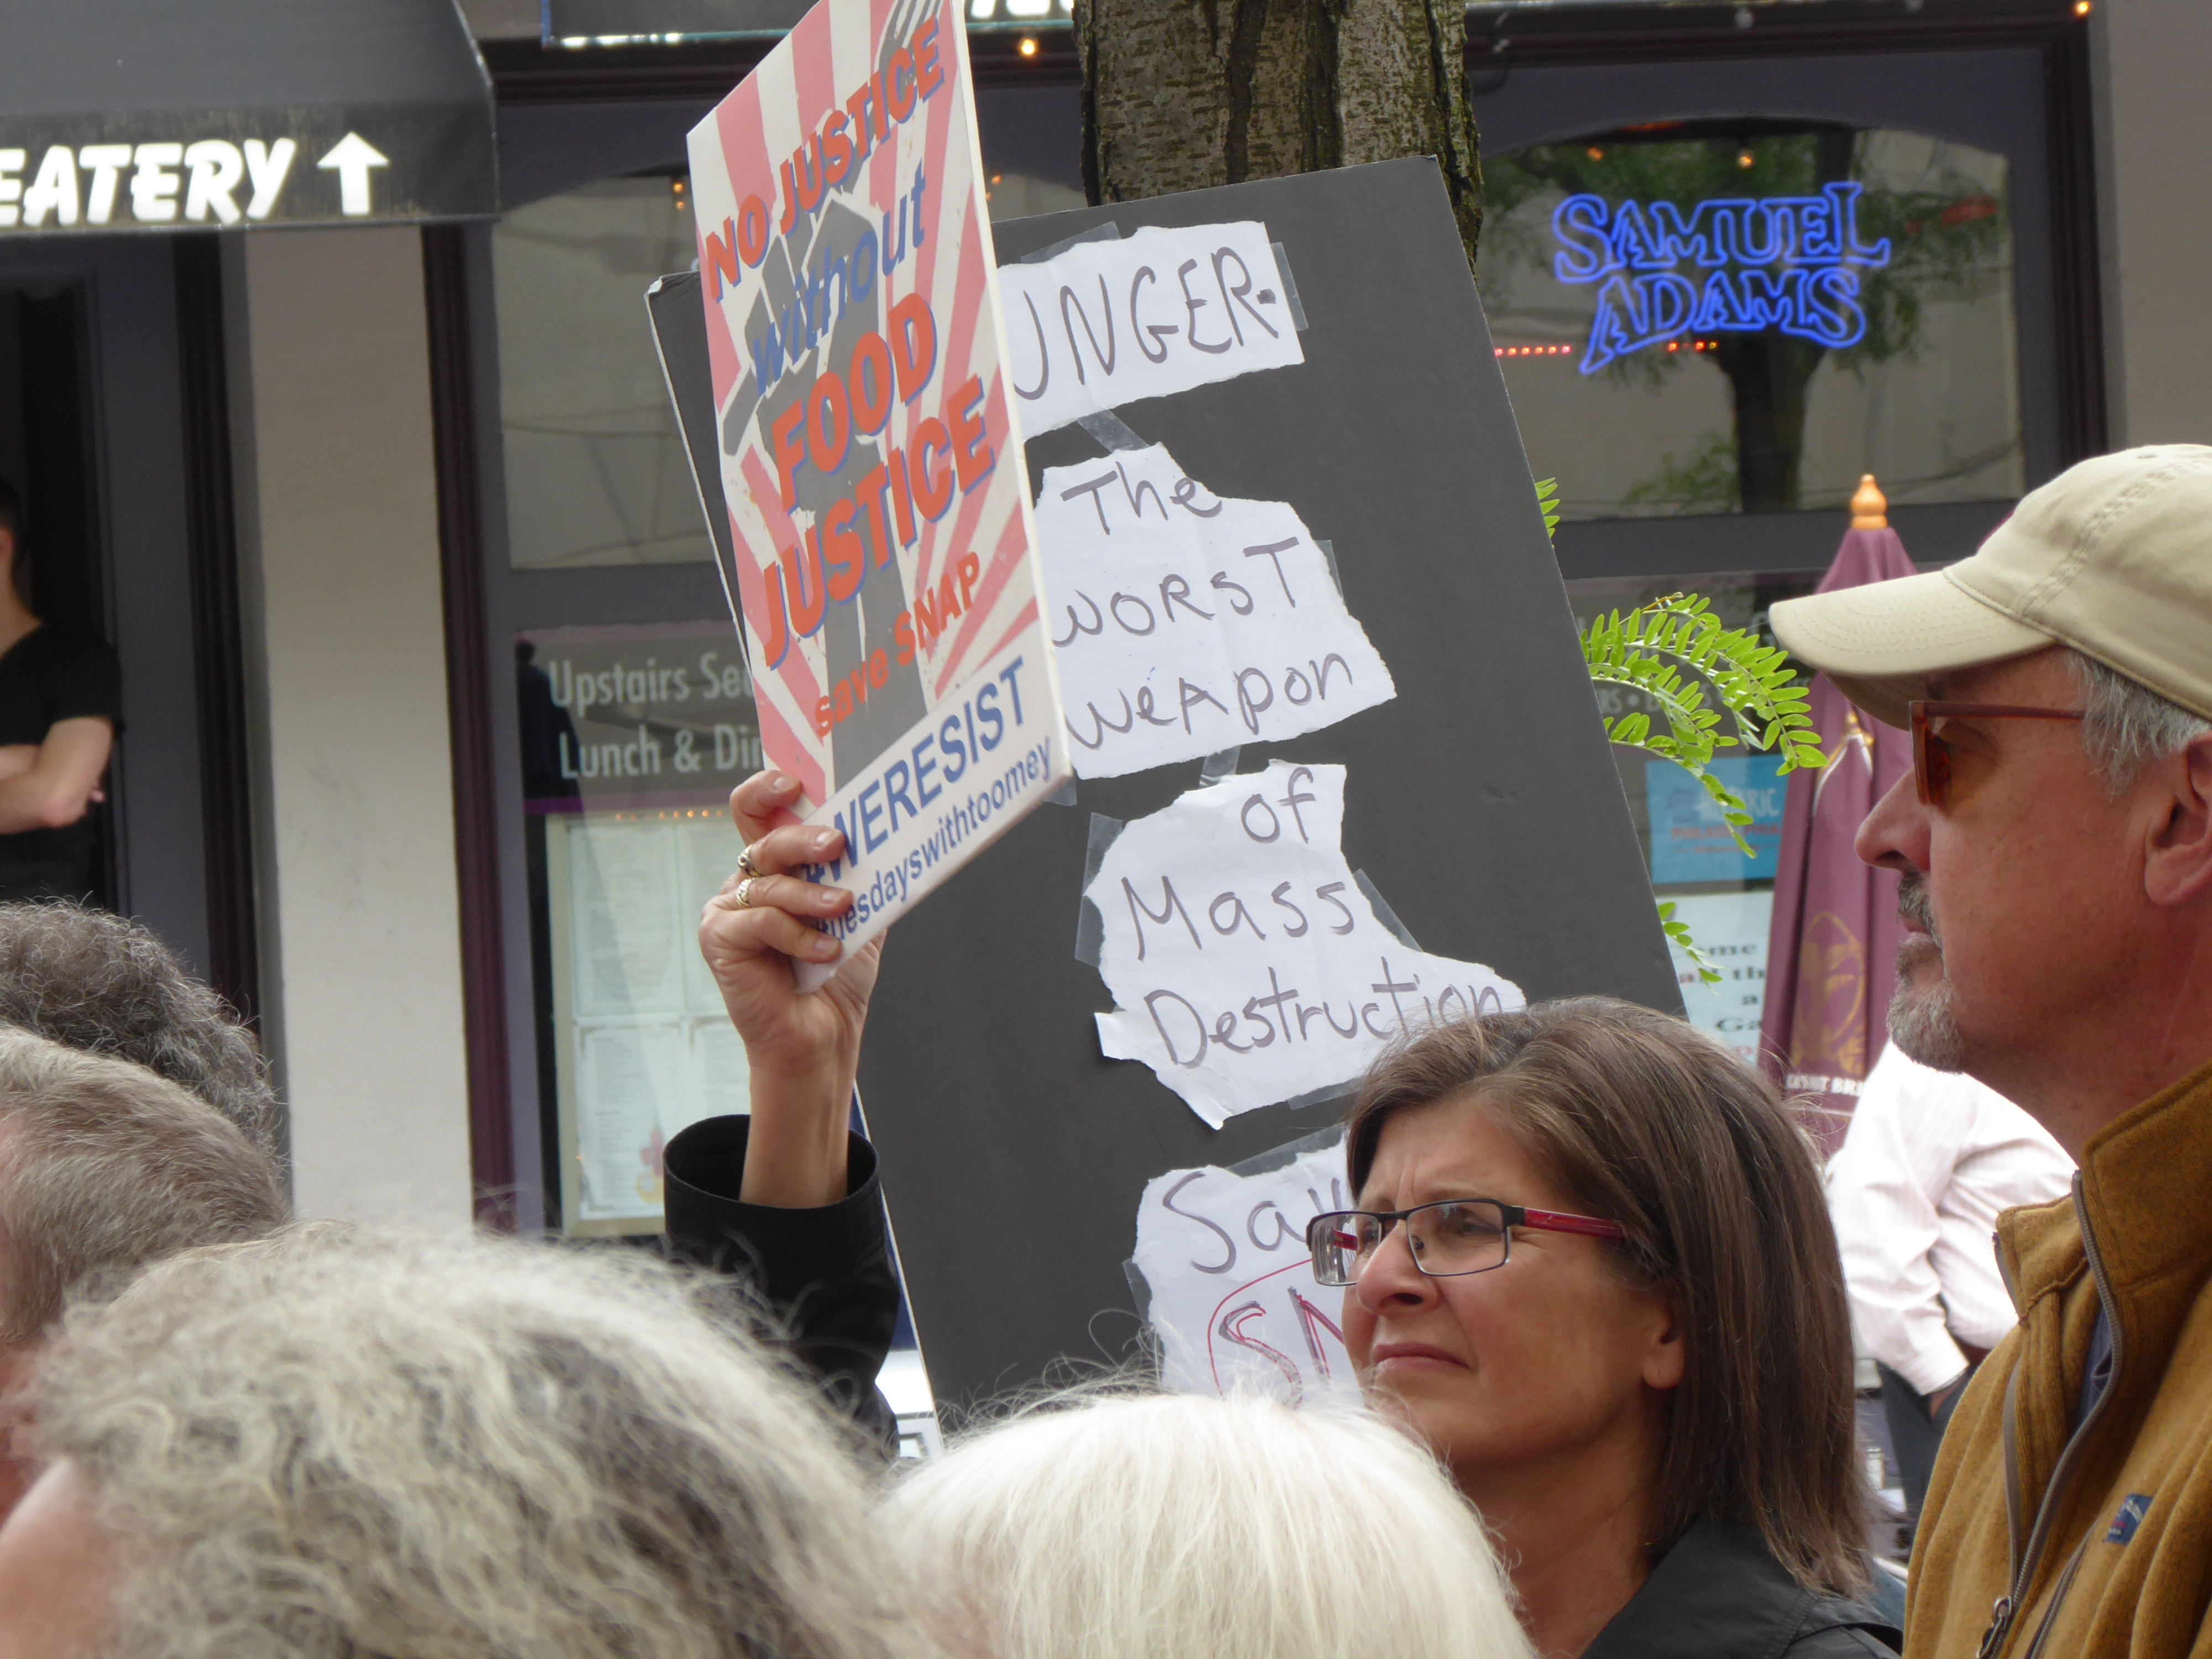 EATERY ↑
NO JUSTICE
without
FOOD
JUSTICE
save SNAP
#WERESIST
#tuesdayswithtoomey
UNGER-
The
WORST
WeApon
of
Mass
Destruction
Sav
SN
SAMUEL
ADAMS
Upstairs Sea
Lunch & Din